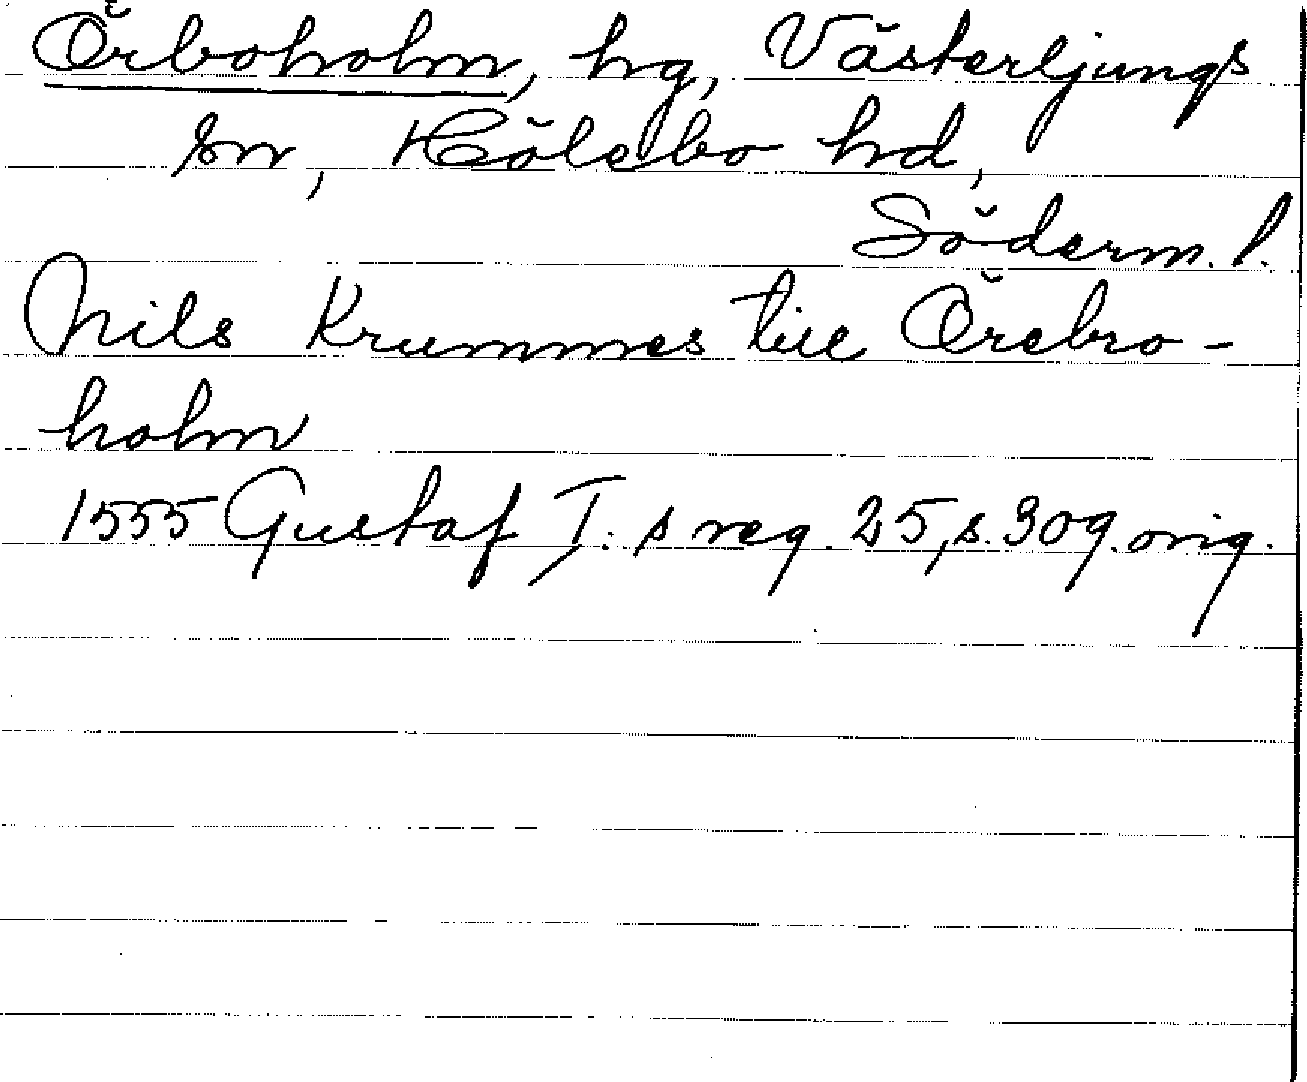 Örboholm, hg, Västerljungs
sn, Hölebo hd,
Söderm. l.
Nils Krummes till Örebro-
holm
1555 Gustaf I:s reg. 25, s. 309. orig.